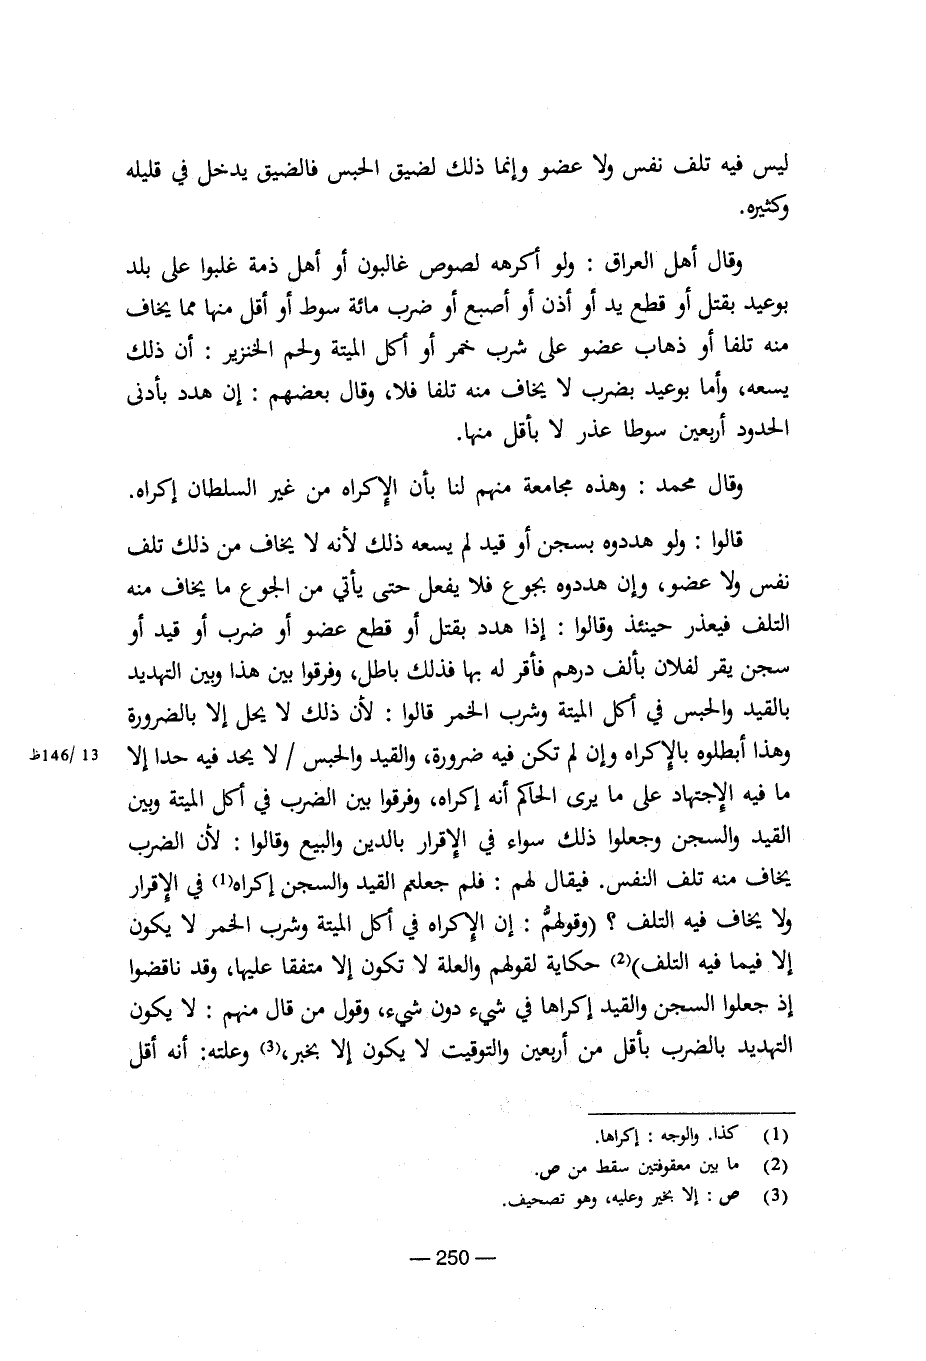 ليس فيه تلف نفس ولا عضو وإنما ذلك لضيق الحبس فالضيق يدخل في قليله
وكثيره.
وقال أهل العراق : ولو أكرهه لصوص غالبون أو أهل ذمة غلبوا على بلد
بوعيد بقتل أو قطع يد أو أذن أو أصبع أو ضرب مائة سوط أو أقل منها مما يخاف
منه تلفا أو ذهاب عضو على شرب خمر أو أكل الميتة ولحم الخنزير : أن ذلك
يسعه، وأما بوعيد بضرب لا يخاف منه تلفا فلا، وقال بعضهم : إن هدد بأدنى
الحدود أربعين سوطا عذر لا بأقل منها.
وقال محمد : وهذه مجامعة منهم لنا بأن الإكراه من غير السلطان إكراه.
قالوا : ولو هددوه بسجن أو قيد لم يسعه ذلك لأنه لا يخاف من ذلك تلف
نفس ولا عضو، وإن هددوه بجوع فلا يفعل حتى يأتي من الجوع ما يخاف منه
التلف فيعذر حينئذ وقالوا : إذا هدد بقتل أو قطع عضو أو ضرب أو قيد أو
سجن يقر لفلان بألف درهم فأقر له بها فذلك باطل، وفرقوا بين هذا وبين التهديد
بالقيد والحبس في أكل الميتة وشرب الخمر قالوا : لأن ذلك لا يحل إلا بالضرورة
وهذا أبطلوه بالإكراه وإن لم تكن فيه ضرورة، والقيد والحبس / لا يحد فيه حدا إلا 13 /146ظ
ما فيه الإجتهاد على ما يرى الحاكم أنه إكراه، وفرقوا بين الضرب في أكل الميتة وبين
القيد والسجن وجعلوا ذلك سواء في الإقرار بالدين والبيع وقالوا : لأن الضرب
يخاف منه تلف النفس. فيقال لهم : فلم جعلتم القيد والسجن إكراه(1) في الإقرار
ولا يخاف فيه التلف ؟ (وقولهمُّ : إن الإكراه في أكل الميتة وشرب الخمر لا يكون
إلا فيما فيه التلف)(2) حكاية لقولهم والعلة لا تكون إلا متفقا عليها، وقد ناقضوا
إذ جعلوا السجن والقيد إكراها في شيء دون شيء، وقول من قال منهم : لا يكون
التهديد بالضرب بأقل من أربعين والتوقيت لا يكون إلا بخبر،(3) وعلته: أنه أقل
(1) كذا. والوجه : إكراها.
(2) ما بين معقوفتين سقط من ص.
(3) ص : إلا بخير وعليه، وهو تصحيف.
— 250 —